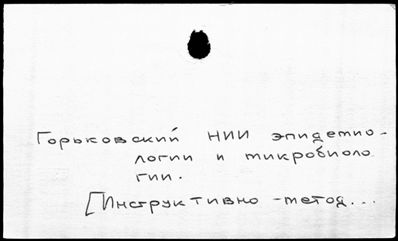 Горьковский НИИ эпидемио-
логии и микробиоло
гии.
[Инструктивно-метод...